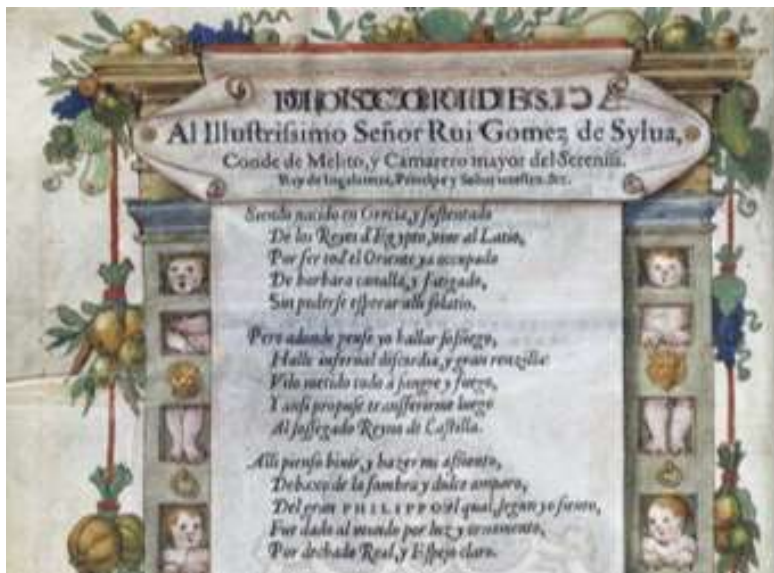 DIOSCORIDES
Al Illustrissimo Señor Rui Gomez de Sylua,
Conde de Melito, y Camarero mayor del Sereniss.
Rey de Ingalaterra, Principe y Señor nuestro. &c.
Siendo nacido en Grecia, y sustentado
De los Reyes d'Egypto, vine al Latio,
Por ser tod'el Oriente ya occupado
De barbara canalla, y fatigado,
Sin poderse esperar alli solatio.
Pero adonde pensè yo hallar sossiego,
Halle infernal discordia, y gran renzilla:
Vilo metido todo à sangre y fuego,
Y ansi propuse transferirme luego
Al sossegado Reyno de Castilla.
Alli pienso biuir, y hazer mi assiento,
Debaxo de la sombra y dulce amparo,
Del gran PHILIPPO: el qual, segun yo siento,
Fue dado al mundo por luz y ornamento,
Por dechado Real, y Espejo claro.